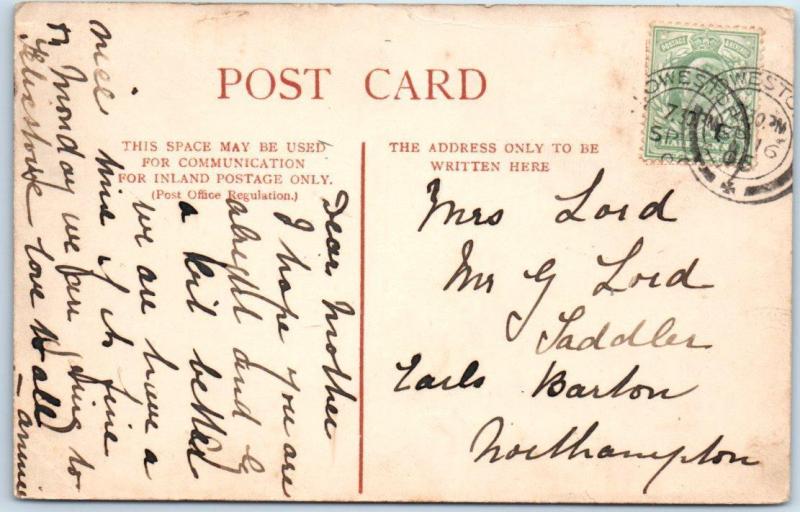 POST CARD
THIS SPACE MAY BE USED
FOR COMMUNICATION
FOR INLAND POSTAGE ONLY.
(Post Office Regulation.)
THE ADDRESS ONLY TO BE
WRITTEN HERE
POSTAGE
LOWESTOFT
7.30 PM
SP 16
06
Mrs Lord
Mr G Lord
Saddler
Earls Barton
Northampton
Dear Mother
I hope you are
alright and
a bit better
we are have a
nice time if its fine
on Monday we are going to
Felixstowe love to all
Annie